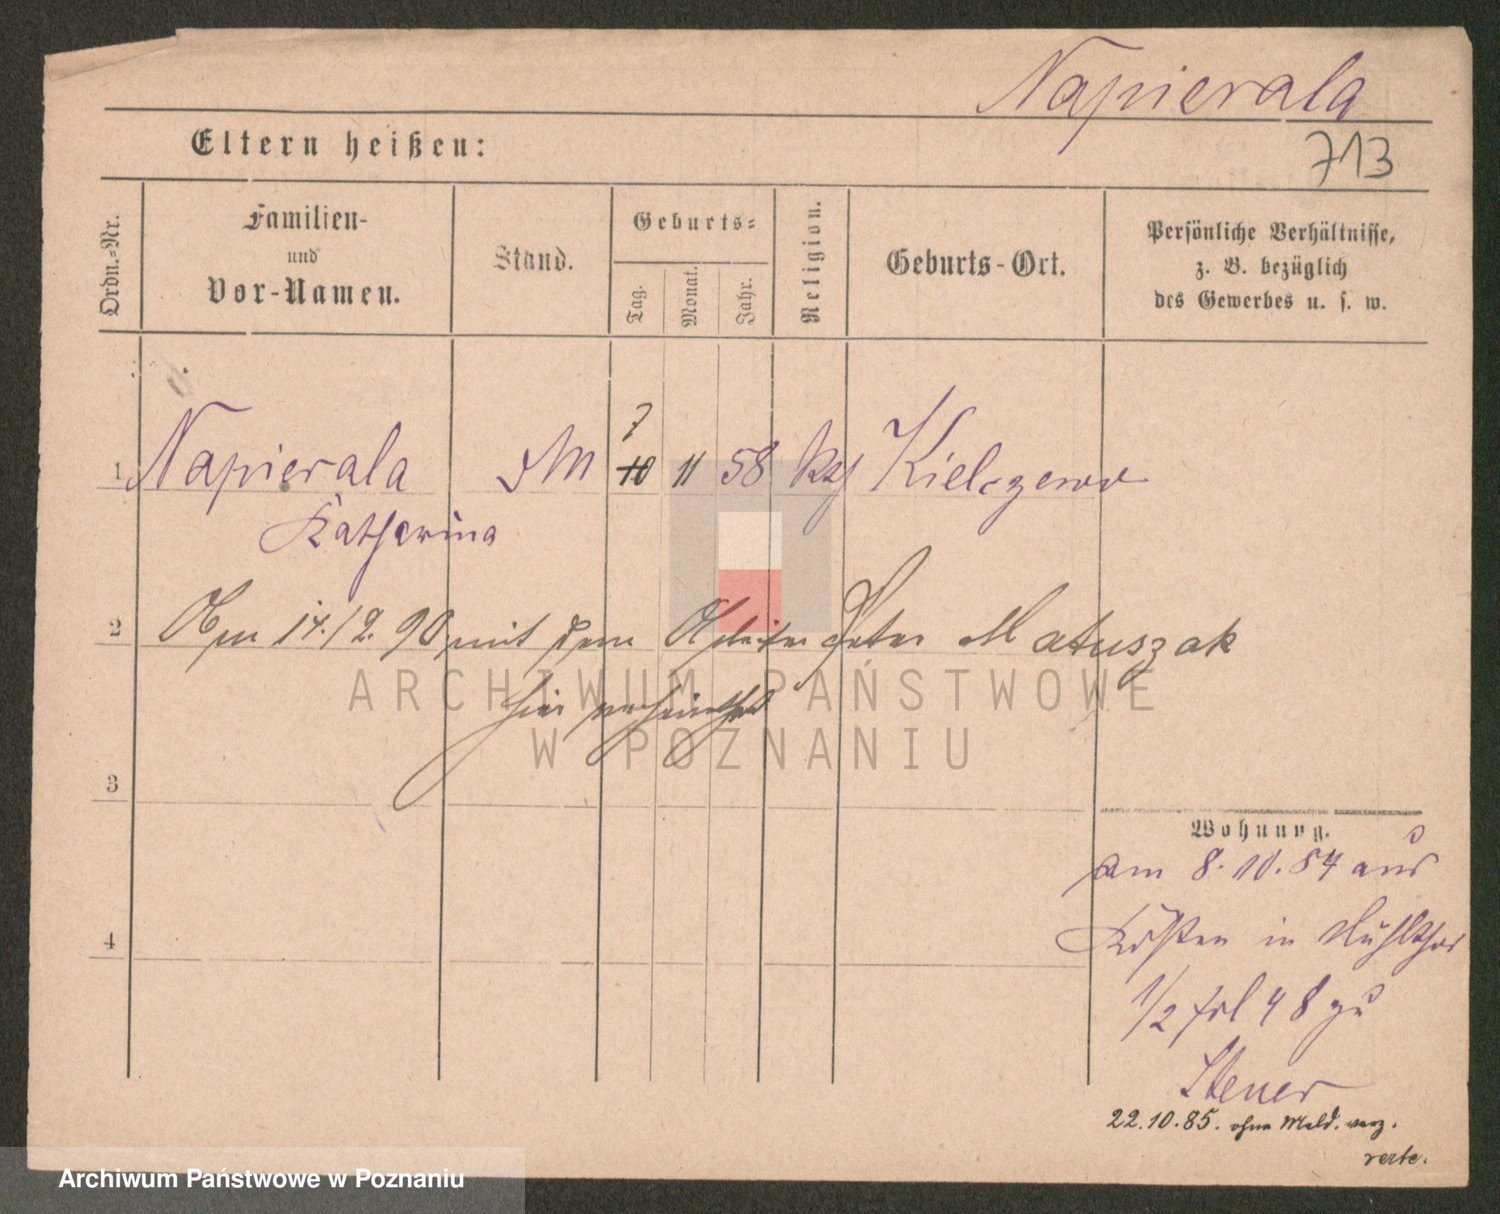 Napierala
713
Eltern heißen:
Ordn.-Nr.
Familien-
und
Vor-Namen.
Stand.
Geburts-
Tag.
Monat.
Jahr.
Religion.
Geburts-Ort.
Persönliche Verhältnisse,
z. B. bezüglich
des Gewerbes u. s. w.
7
1 Napierala 10 11 58 Kielczewo
Katharina
2 Am 17./2. 90 mit dem Arbeiter Peter Matuszak
hier verheirathet
3
Wohnung.
am 8.10.84 aus
Kosten in Mühlthor
4
1/2 48 zu
Steuer
22.10.85. ohne Meld. verz.
verte.
ARCHIWUM PAŃSTWOWE
W POZNANIU
Archiwum Państwowe w Poznaniu